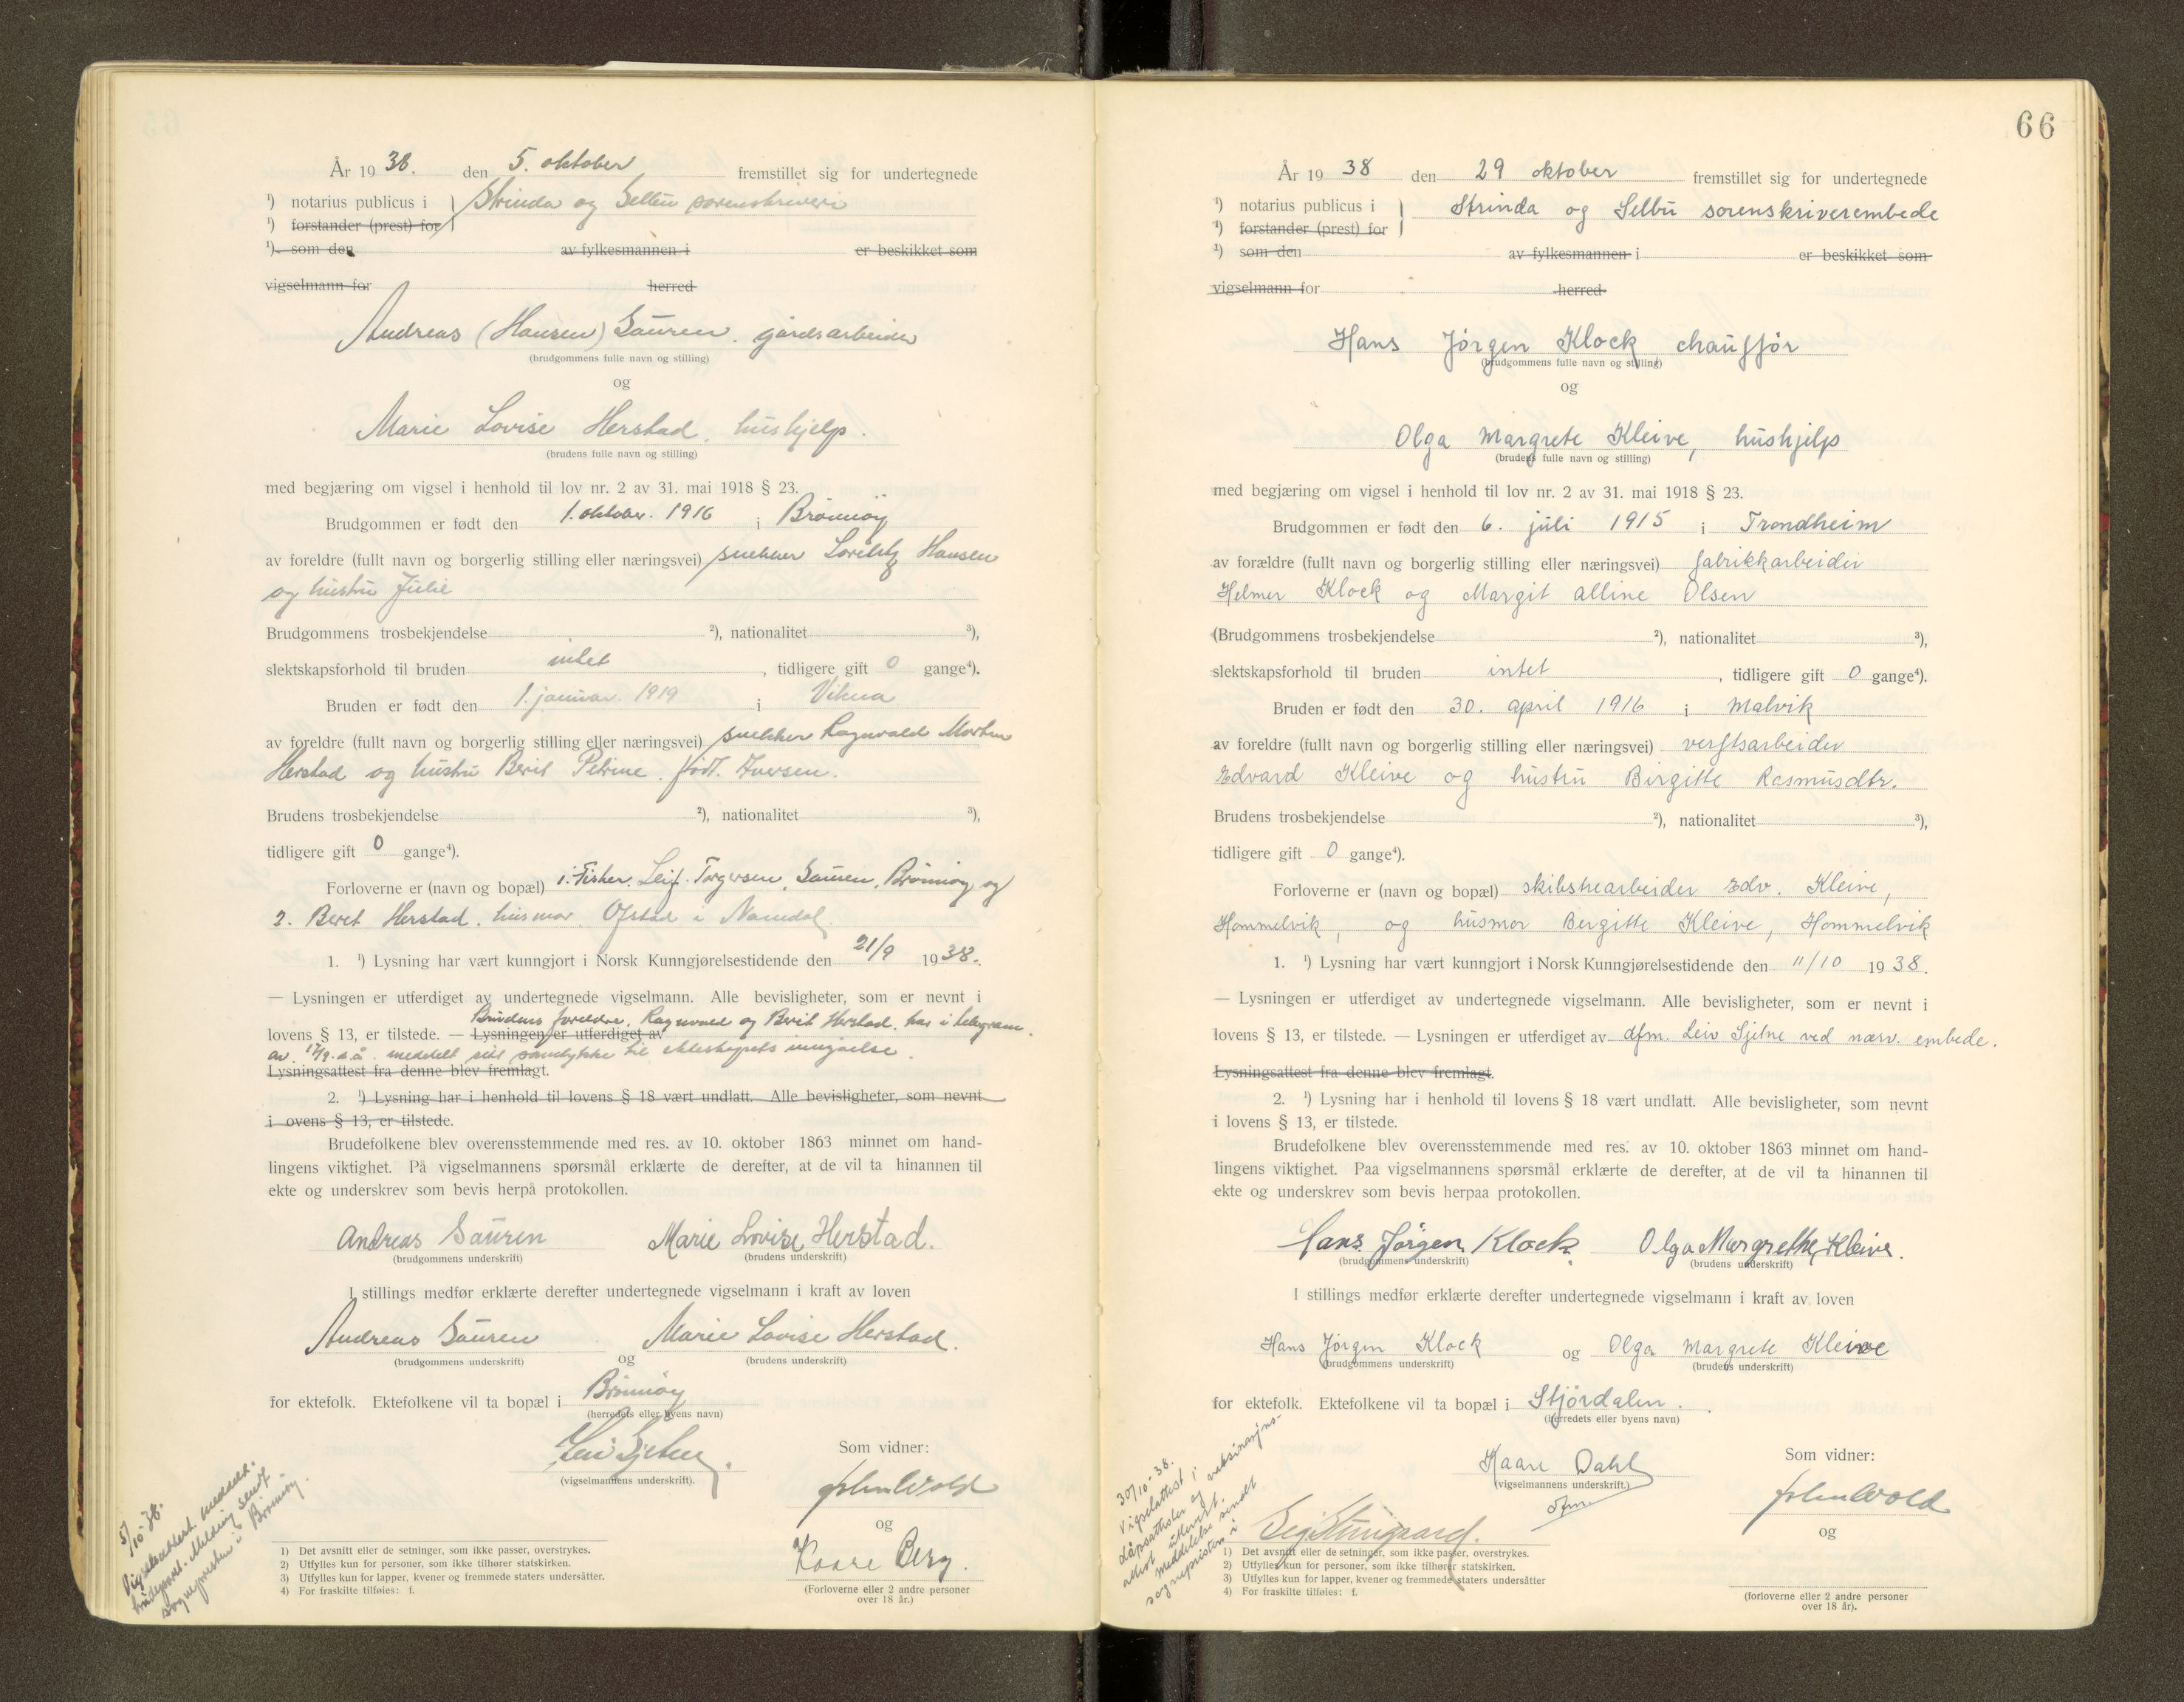 År 19 38. den 5. oktober fremstillet sig for undertegnede
¹) notarius publicus i Strinda og Selbu sorenskriveri
¹) forstander (prest) for
¹) som den av fylkesmannen i er beskikket som
vigselmann for herred
Andreas (Hansen) Sauren. gårdsarbeider
(brudgommens fulle navn og stilling)
og
Marie Lovise Herstad, hushjelp.
(brudens fulle navn og stilling)
med begjæring om vigsel i henhold til lov nr. 2 av 31. mai 1918 § 23.
Brudgommen er født den 1. oktober. 1916 i Brønnøy
av foreldre (fullt navn og borgerlig stilling eller næringsvei) snekker Hansen
og hustru Julie
Brudgommens trosbekjendelse ²), nationalitet ³),
slektskapsforhold til bruden intet , tidligere gift 0 gange⁴).
Bruden er født den 1. januar. 1919 i Vikna
av foreldre (fullt navn og borgerlig stilling eller næringsvei) snekker Ragnvald Morten
Herstad og hustru Berit Petrine. født. Iversen.
Brudens trosbekjendelse ²), nationalitet ³),
tidligere gift 0 gange⁴).
Forloverne er (navn og bopæl) 1. Fisker. Leif. Torgersen, Sauren, Brønnøy og
2. Beret Herstad. husmor. Ofstad i Namdal
1. ¹) Lysning har vært kunngjort i Norsk Kunngjørelsestidende den 21/9 1938.
— Lysningen er utferdiget av undertegnede vigselmann. Alle bevisligheter, som er nevnt i
Brudens foreldre, Ragnvald og Berit Herstad, har i telegram
lovens § 13, er tilstede. — Lysningen er utferdiget av
av 17/9. d.å. meddelt sitt samtykke til ekteskapets inngåelse.
Lysningsattest fra denne blev fremlagt.
2. ¹) Lysning har i henhold til lovens § 18 vært undlatt. Alle bevisligheter, som nevnt
i ovens § 13, er tilstede.
Brudefolkene blev overensstemmende med res. av 10. oktober 1863 minnet om hand-
lingens viktighet. På vigselmannens spørsmål erklærte de derefter, at de vil ta hinannen til
ekte og underskrev som bevis herpå protokollen.
Andreas Sauren Marie Lovise Herstad.
(brudgommens underskrift) (brudens underskrift)
I stillings medfør erklærte derefter undertegnede vigselmann i kraft av loven
Andreas Sauren og Marie Lovise Herstad.
(brudgommens underskrift) (brudens underskrift)
for ektefolk. Ektefolkene vil ta bopæl i Brønnøy
(herredets eller byens navn)
Leiv Sjetne
(vigselmannens underskrift).
Som vidner:
John Wold
og
Kaare Berg.
(Forloverne eller 2 andre personer
over 18 år.)
5/10-38.
Vigselsattest meddelt
brudeparet. Melding sendt
sognepresten i Brønnøy.
1) Det avsnitt eller de setninger, som ikke passer, overstrykes.
2) Utfylles kun for personer, som ikke tilhører statskirken.
3) Utfylles kun for lapper, kvener og fremmede staters undersåtter.
4) For fraskilte tilføies: f.
66
År 19 38 den 29 oktober fremstillet sig for undertegnede
¹) notarius publicus i Strinda og Selbu sorenskriverembede
¹) forstander (prest) for
¹) som den av fylkesmannen i er beskikket som
vigselmann for herred
Hans Jørgen Klock chauffør
(brudgommens fulle navn og stilling)
og
Olga Margrete Kleive, hushjelp
(brudens fulle navn og stilling)
med begjæring om vigsel i henhold til lov nr. 2 av 31. mai 1918 § 23.
Brudgommen er født den 6. juli 1915 i Trondheim
av forældre (fullt navn og borgerlig stilling eller næringsvei) fabrikkarbeider
Helmer Klock og Margit Alline Olsen
(Brudgommens trosbekjendelse ²), nationalitet ³),
slektskapsforhold til bruden intet , tidligere gift 0 gange⁴).
Bruden er født den 30. april 1916 i Malvik
av foreldre (fullt navn og borgerlig stilling eller næringsvei) verftsarbeider
Edvard Kleive og hustru Birgitte Rasmusdtr.
Brudens trosbekjendelse ²), nationalitet ³),
tidligere gift 0 gange⁴).
Forloverne er (navn og bopæl) skibstrearbeider Edv. Kleive,
Hommelvik, og husmor Bergitte Kleive, Hommelvik
1. ¹) Lysning har vært kunngjort i Norsk Kunngjørelsestidende den 11/10 1938.
— Lysningen er utferdiget av undertegnede vigselmann. Alle bevisligheter, som er nevnt i
lovens § 13, er tilstede. — Lysningen er utferdiget av dfm. Leiv Sjetne ved nærv. embede.
Lysningsattest fra denne blev fremlagt.
2. ¹) Lysning har i henhold til lovens § 18 vært undlatt. Alle bevisligheter, som nevnt
i lovens § 13, er tilstede.
Brudefolkene blev overensstemmende med res. av 10. oktober 1863 minnet om hand-
lingens viktighet. Paa vigselmannens spørsmål erklærte de derefter, at de vil ta hinannen til
ekte og underskrev som bevis herpaa protokollen.
Hans Jørgen Klock Olga Margrethe Kleive.
(brudgommens underskrift) (brudens underskrift)
I stillings medfør erklærte derefter undertegnede vigselmann i kraft av loven
Hans Jørgen Klock og Olga Margrete Kleive
(brudgommens underskrift) (brudens underskrift)
for ektefolk. Ektefolkene vil ta bopæl i Stjørdalen.
(herredets eller byens navn)
Kaare Dahl
(vigselmannens underskrift.)
dfm.
Som vidner:
John Wold
og
(forloverne eller 2 andre personer
over 18 år).
30/10-38.
Vigselattest,
dåpsattester og vaksinasjons-
attest utlevert.
Meddelelse sendt
sognepresten i
1) Det avsnitt eller de setninger, som ikke passer, overstrykes.
2) Utfylles kun for personer, som ikke tilhører statskirken.
3) Utfylles kun for lapper, kvener og fremmede staters undersåtter
4) For fraskilte tilføies: f.